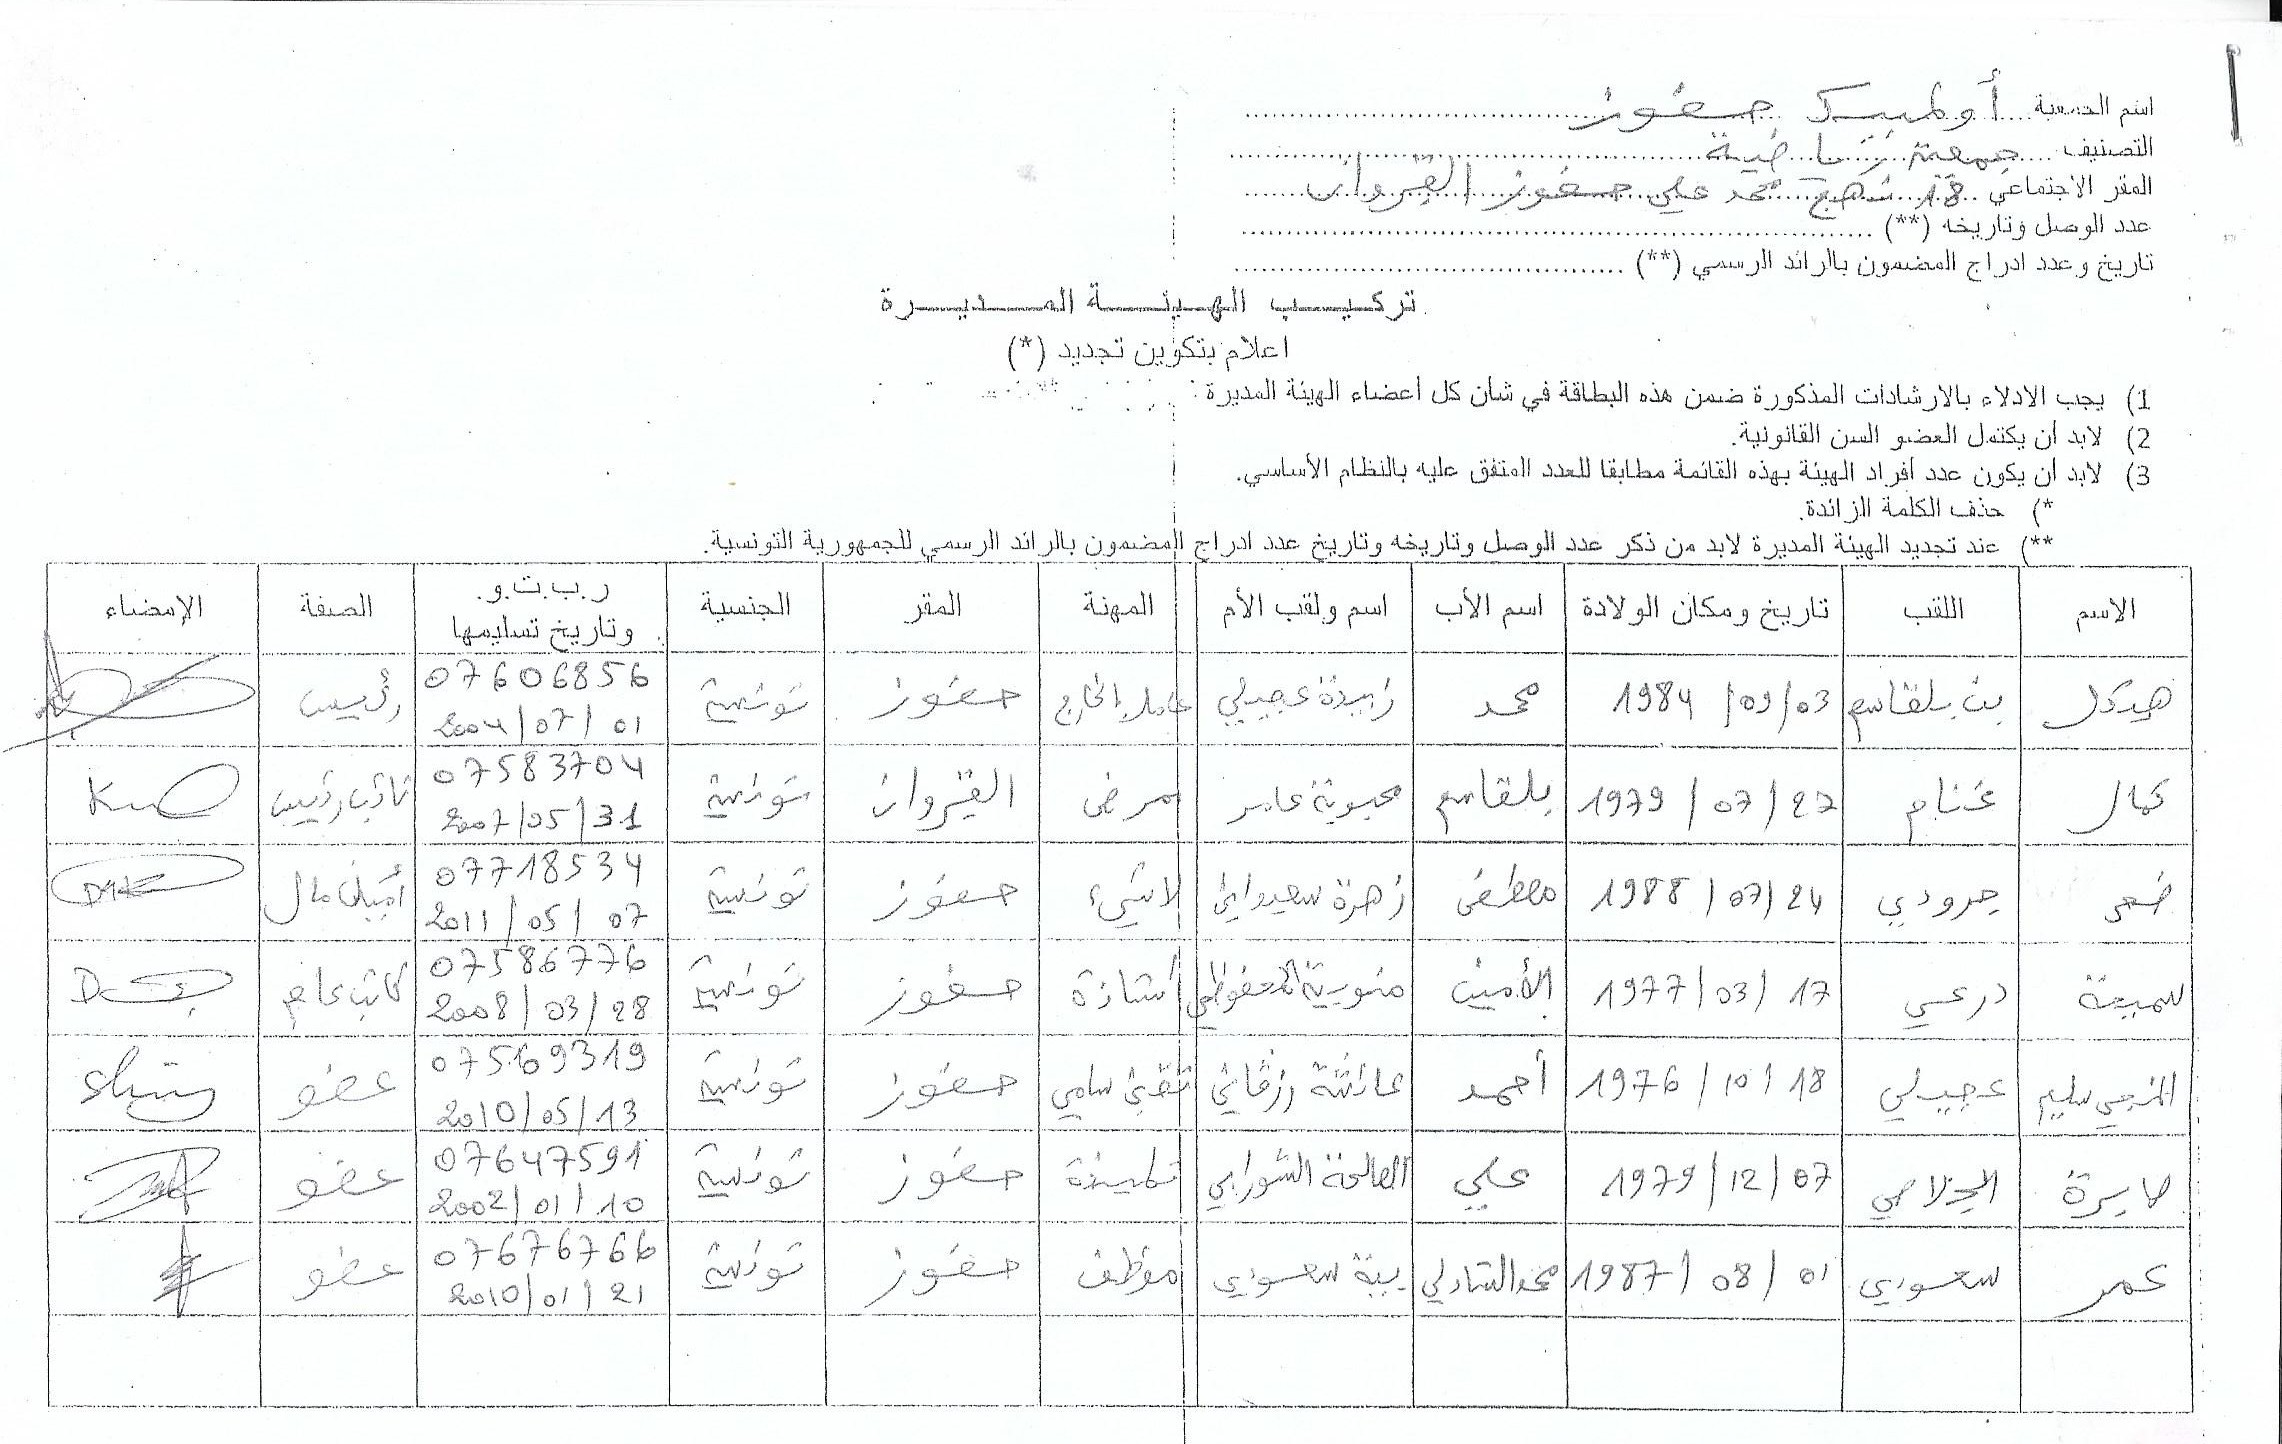 اسم الجمعية أولمبيك حفوز
التصنيف جمعية رياضية
المقر الاجتماعي 18 نهج محمد علي حفوز القيروان
عدد الوصل وتاريخه (**)
تاريخ وعدد ادراج المضمون بالرائد الرسمي (**)
تركيب الهيئة المديرة
اعلام بتكوين تجديد (*)
1) يجب الادلاء بالارشادات المذكورة ضمن هذه البطاقة في شأن كل أعضاء الهيئة المديرة:
2) لابد أن يكتمل العضو السن القانونية.
3) لابد أن يكون عدد أفراد الهيئة بهذه القائمة مطابقا للعدد المتفق عليه بالنظام الأساسي.
*) حذف الكلمة الزائدة.
**) عند تجديد الهيئة المديرة لابد من ذكر عدد الوصل وتاريخه وتاريخ عدد ادراج المضمون بالرائد الرسمي للجمهورية التونسية.
الاسم اللقب تاريخ ومكان الولادة اسم الأب اسم ولقب الأم المهنة المقر الجنسية ر.ب.ت.و. وتاريخ تسليمها الصفة الإمضاء
هيكل بن بلقاسم 1984/09/03 محمد زبيدة عجيلي عامل بالخارج حفوز تونسية 07606856 2004/07/01 رئيس
كمال غنام 1979/07/27 بلقاسم محبوبة عامر ممرض القيروان تونسية 07583704 2007/05/31 نائب رئيس
ضحى جرودي 1988/07/24 مصطفى زهرة سعيداني لا شيء حفوز تونسية 07718534 2011/05/07 أمين مال
سميعة درعي 1977/03/17 الأمين منوبية المحفوظي أستاذة حفوز تونسية 07586776 2008/03/28 كاتب عام
المنجي سليم عجيلي 1976/10/18 أحمد عائشة رزقاني تقني سامي حفوز تونسية 07569319 2010/05/13 عضو
صابرة الجلاصي 1979/12/07 علي الصالحة الشورابي تلميذة حفوز تونسية 07647591 2002/01/10 عضو
عمر سعودي 1987/08/01 محمد الشاذلي بية سعودي موظف حفوز تونسية 07676766 2010/01/21 عضو